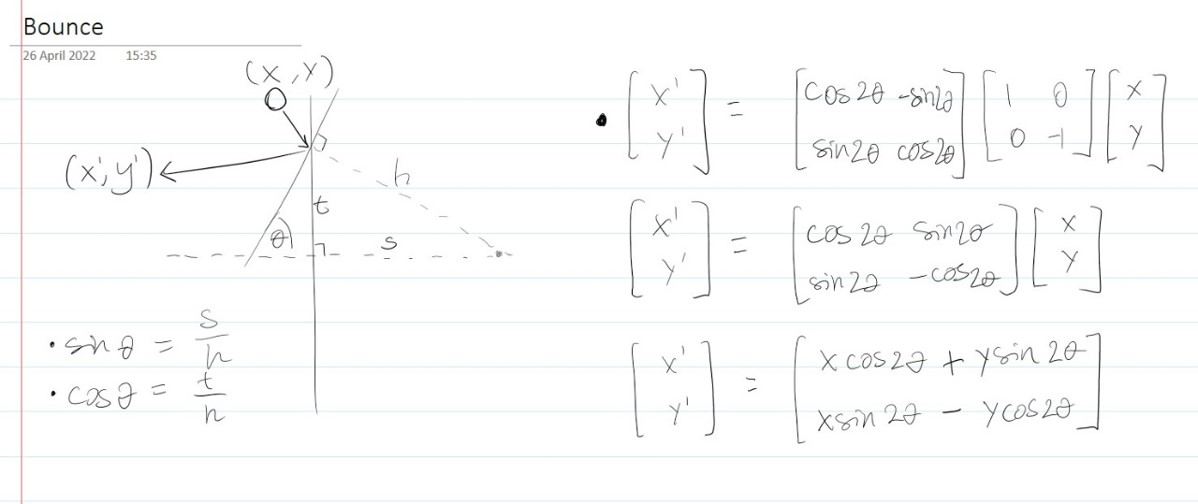 Bounce
26 April 2022 15:35
(x, y)
(x', y')
h
t
θ
s
• sin θ = s/h
• cos θ = t/h
• [x' y'] = [cos 2θ -sin2θ sin2θ cos2θ] [1 0 0 -1] [x y]
[x' y'] = [cos 2θ sin2θ sin2θ -cos2θ] [x y]
[x' y'] = [x cos2θ + y sin 2θ x sin 2θ - y cos2θ]